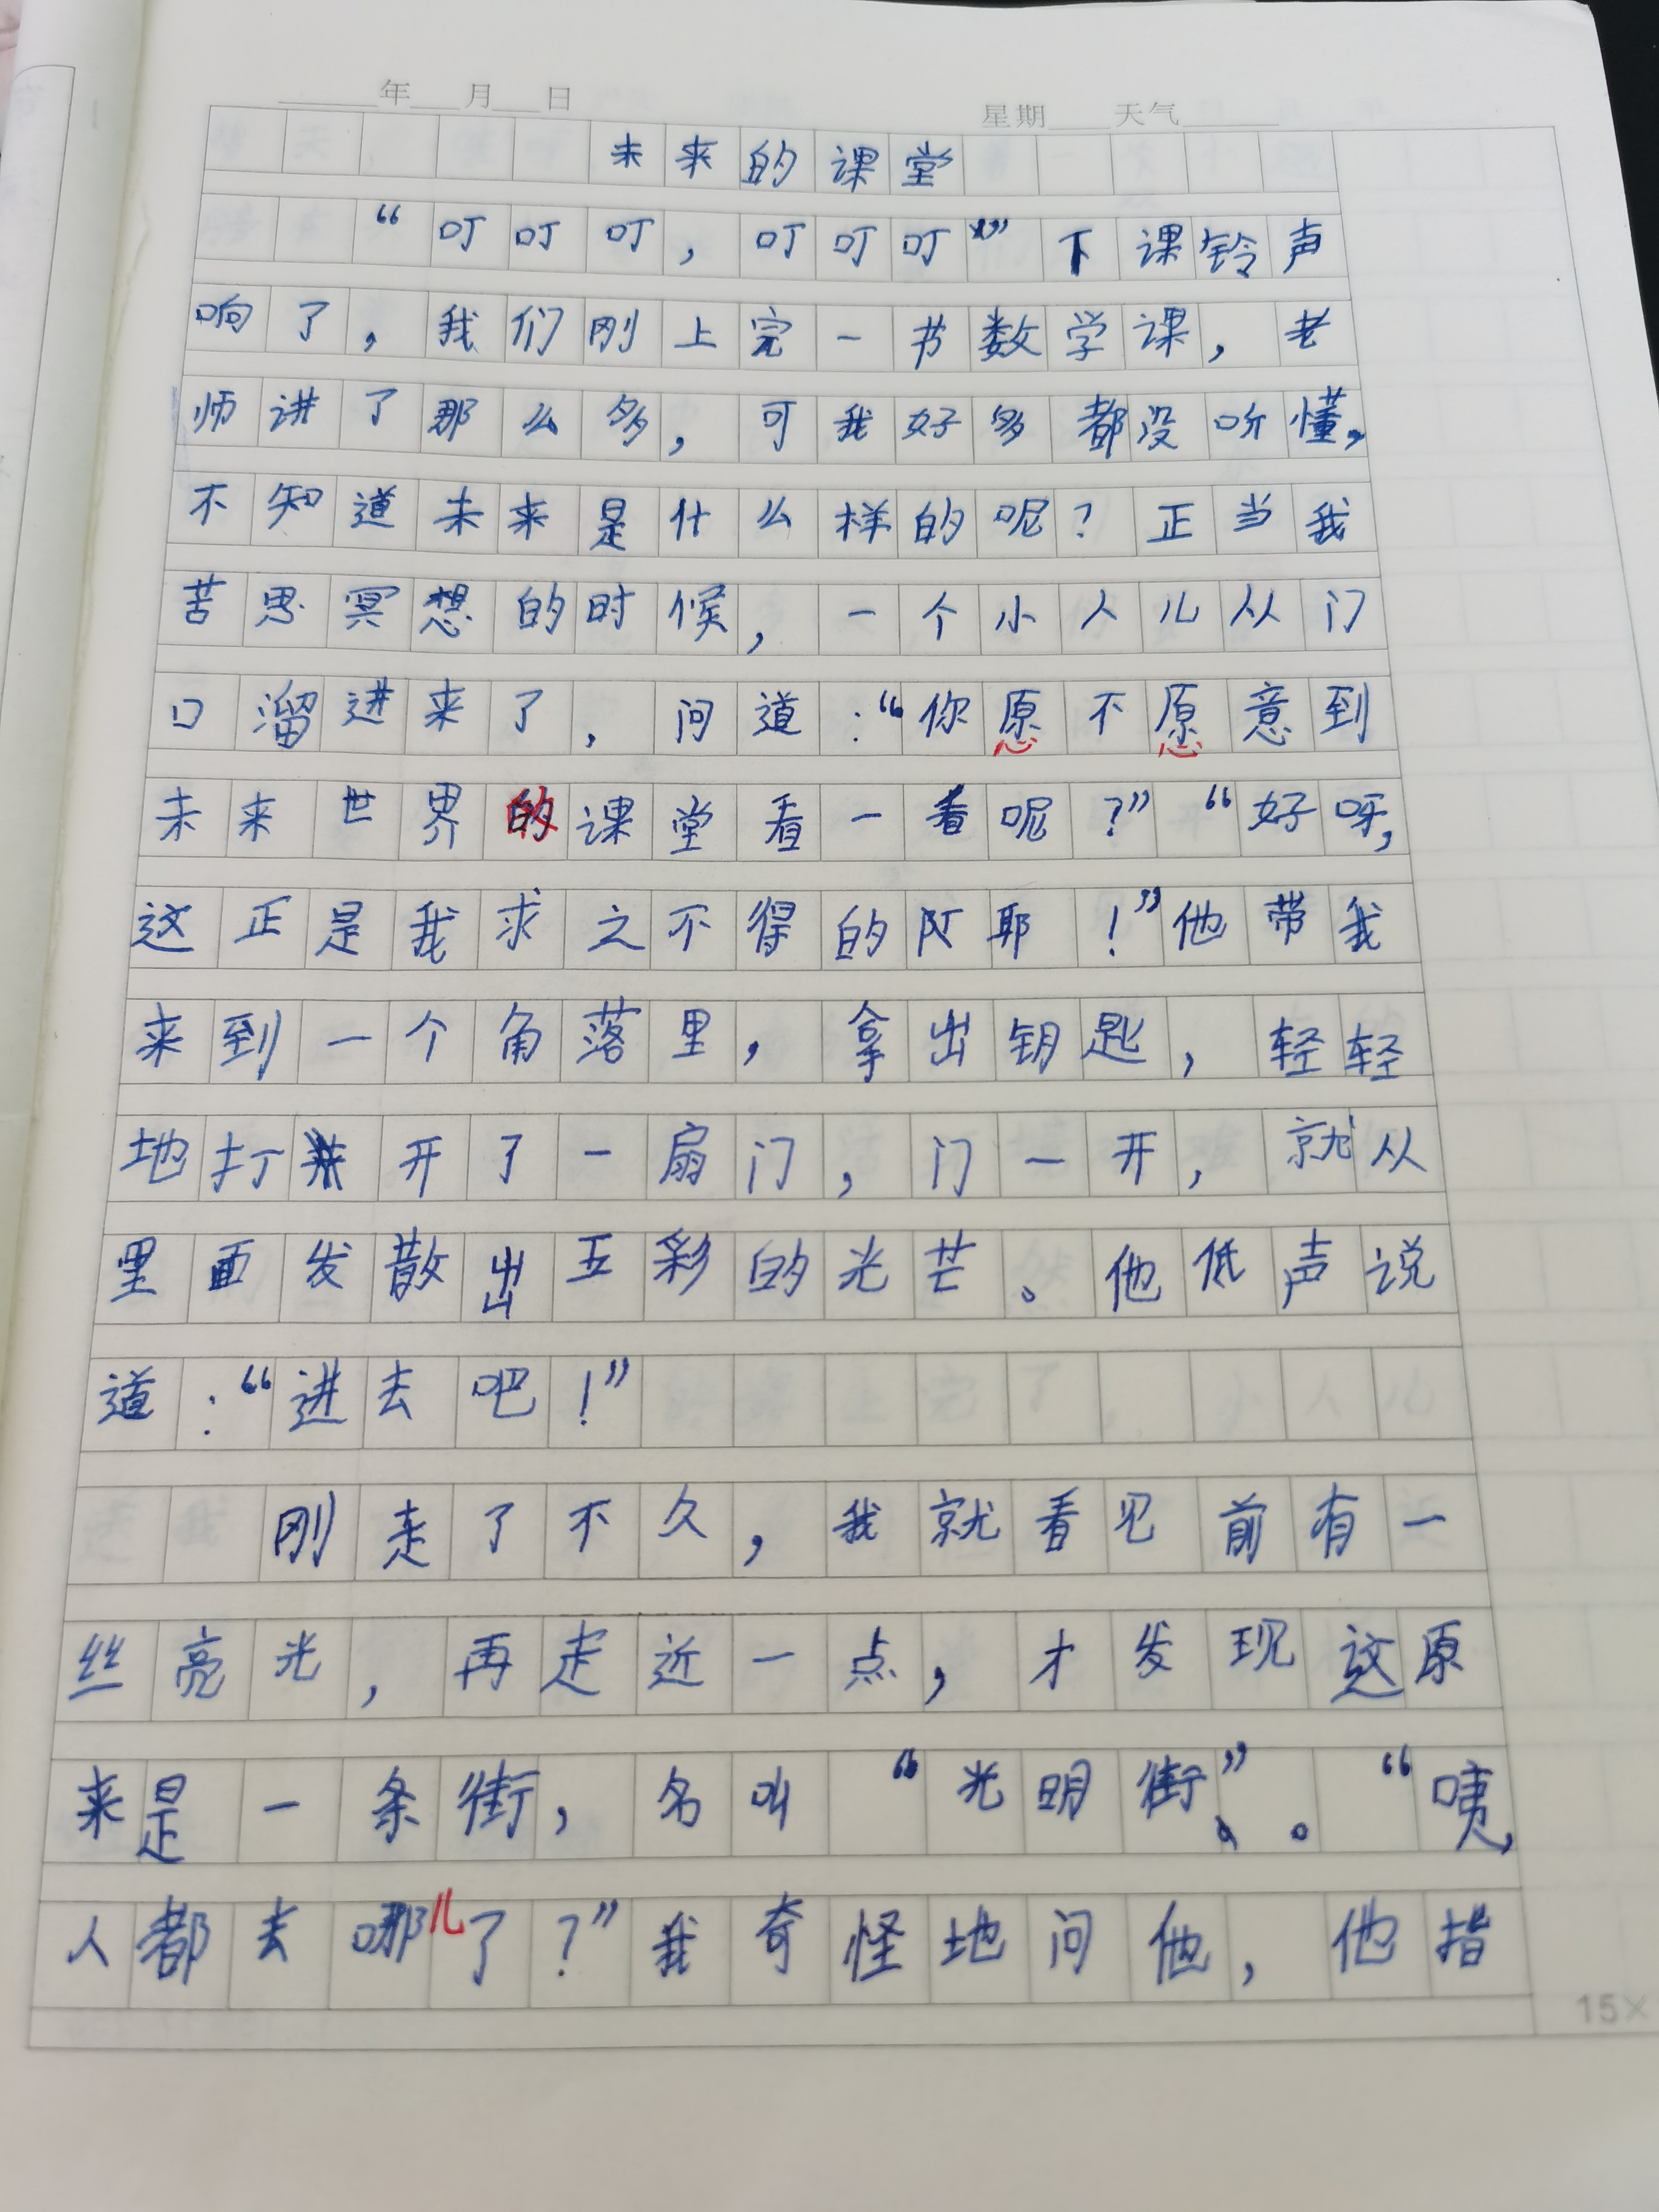 年 月 日 星期 天气
未来的课堂
“叮叮叮，叮叮叮”下课铃声
响了，我们刚上完一节数学课，老
师讲了那么多，可我好多都没听懂，
不知道未来是什么样的呢？正当我
苦思冥想的时候，一个小人儿从门
口溜进来了，问道：“你愿不愿意到
未来世界的课堂看一看呢？”“好呀，
这正是我求之不得的阿耶！”他带我
来到一个角落里，拿出钥匙，轻轻
地打开了一扇门，门一开，就从
里面发散出五彩的光芒。他低声说
道：“进去吧！”
刚走了不久，我就看见前有一
丝亮光，再走近一点，才发现这原
来是一条街，名叫“光明街”。“咦，
人都去哪儿了？”我奇怪地问他，他指
15×